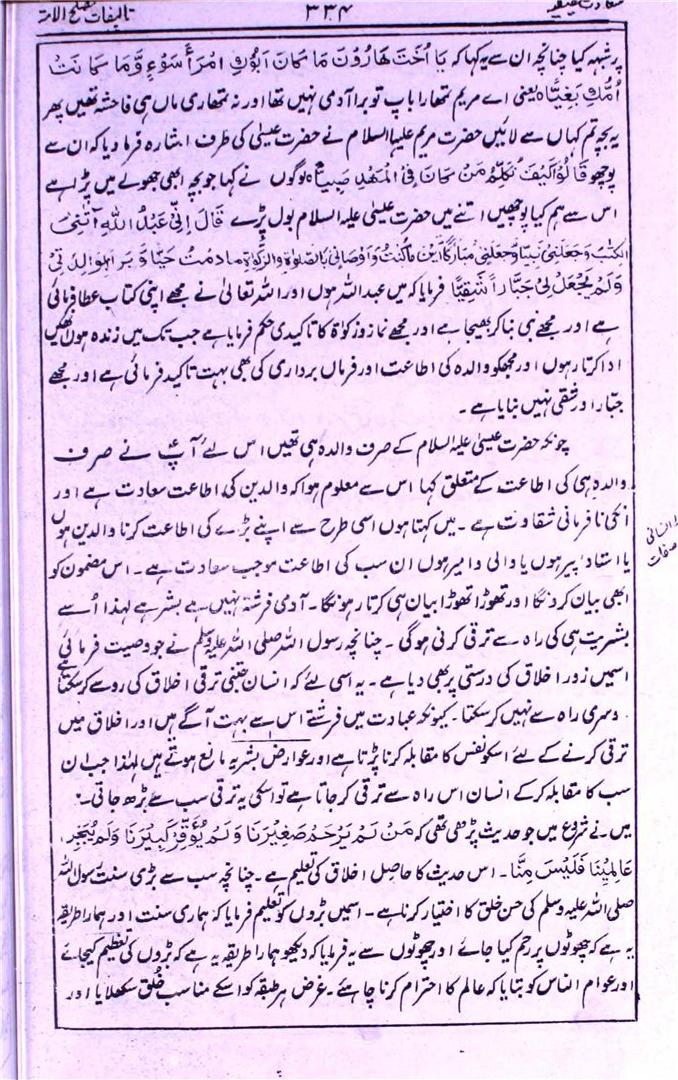 تالیفات مصلح الامۃ ۳۳۴ سعادت حقیقیہ
پر شبہہ کیا چنانچہ ان سے یہ کہا کہ یَا اُخْتَ هَارُوْنَ مَا كَانَ اَبُوْكِ امْرَأَ سَوْءٍ وَّمَا كَانَتْ
اُمُّكِ بَغِيًّا ہ یعنی اے مریم تمھارا باپ تو برا آدمی نہیں تھا اور نہ تمھاری ماں ہی فاحشہ تھیں پھر
یہ بچہ تم کہاں سے لائیں حضرت مریم علیہا السلام نے حضرت عیسیٰ کی طرف اشارہ فرمادیا کہ ان سے
پوچھو قَالُوْا كَيْفَ نُكَلِّمُ مَنْ كَانَ فِی الْمَهْدِ صَبِيًّا ہ لوگوں نے کہا جو بچہ ابھی جھولے میں پڑا ہے
اس سے ہم کیا پوچھیں اتنے میں حضرت عیسیٰ علیہ السلام بول پڑے قَالَ اِنِّیْ عَبْدُ اللّٰهِ اٰتٰنِیَ
الْكِتٰبَ وَجَعَلَنِیْ نَبِيًّا وَّجَعَلَنِیْ مُبَارَكًا اَيْنَ مَا كُنْتُ وَاَوْصَانِیْ بِالصَّلٰوةِ وَالزَّكٰوةِ مَا دُمْتُ حَيًّا وَّ بَرًّا بِوَالِدَتِیْ
وَلَمْ يَجْعَلْنِیْ جَبَّارًا شَقِيًّا فرمایا کہ میں عبد اللہ ہوں اور اللہ تعالیٰ نے مجھے اپنی کتاب عطا فرمائی
ہے اور مجھے نبی بنا کر بھیجا ہے اور مجھے نماز و زکوٰۃ کا تاکیدی حکم فرمایا ہے جب تک میں زندہ ہوں انھیں
ادا کرتا رہوں اور مجھکو والدہ کی اطاعت اور فرماں برداری کی بھی بہت تاکید فرمائی ہے اور مجھے
جبّار اور شقی نہیں بنایا ہے ۔
چونکہ حضرت عیسیٰ علیہ السلام کے صرف والدہ ہی تھیں اس لئے آپؑ نے صرف
والدہ ہی کی اطاعت کے متعلق کہا اس سے معلوم ہوا کہ والدین کی اطاعت سعادت ہے اور
انکی نافرمانی شقاوت ہے ۔ میں کہتا ہوں اسی طرح سے اپنے بڑے کی اطاعت کرنا والدین ہوں
یا استاد پیر ہوں یا والی و امیر ہوں ان سب کی اطاعت موجب سعادت ہے۔ اس مضمون کو
انسانی صفات
ابھی بیان کردنگا اور تھوڑا تھوڑا بیان ہی کرتا رہونگا ۔ آدمی فرشتہ نہیں ہے بشر ہے لہذا اُسے
بشریت ہی کی راہ سے ترقی کرنی ہوگی ۔ چنانچہ رسول اللہ صلی اللہ علیہ وسلم نے جو وصیت فرمائی ہے
اسمیں زور اخلاق کی درستی پر بھی دیا ہے ۔ یہ اسی لئے کہ انسان جتنی ترقی اخلاق کی روسے کرسکتا
دوسری راہ سے نہیں کر سکتا ۔ کیونکہ عبادت میں فرشتے اس سے بہت آگے ہیں اور اخلاق میں
ترقی کرنے کے لئے اسکو نفس کا مقابلہ کرنا پڑتا ہے اور عوارض بشریہ مانع ہوتے ہیں لہٰذا جب ان
سب کا مقابلہ کر کے انسان اس راہ سے ترقی کر جاتا ہے تو اسکی یہ ترقی سب سے بڑھ جاتی ۔
میں نے شروع میں جو حدیث پڑھی تھی کہ مَنْ لَّمْ يَرْحَمْ صَغِيْرَنَا وَلَمْ يُوَقِّرْ كَبِيْرَنَا وَلَمْ يُبَجِّلْ
عَالِمِيْنَا فَلَيْسَ مِنَّا ۔ اس حدیث کا حاصل اخلاق کی تعلیم ہے ۔ چنانچہ سب سے بڑی سنت رسول اللہ
صلی اللہ علیہ وسلم کی حسن خلق کا اختیار کرنا ہے ۔ اسمیں بڑوں کو تعلیم فرمایا کہ ہماری سنت اور ہمارا طریقہ
یہ ہے کہ چھوٹوں پر رحم کیا جائے اور چھوٹوں سے یہ فرمایا کہ دیکھو ہمارا طریقہ یہ ہے کہ بڑوں کی تعظیم کیجائے
اور عوام الناس کو بتایا کہ عالم کا احترام کرنا چاہئے ۔ غرض ہر طبقہ کو اسکے مناسب خُلق سکھلایا اور